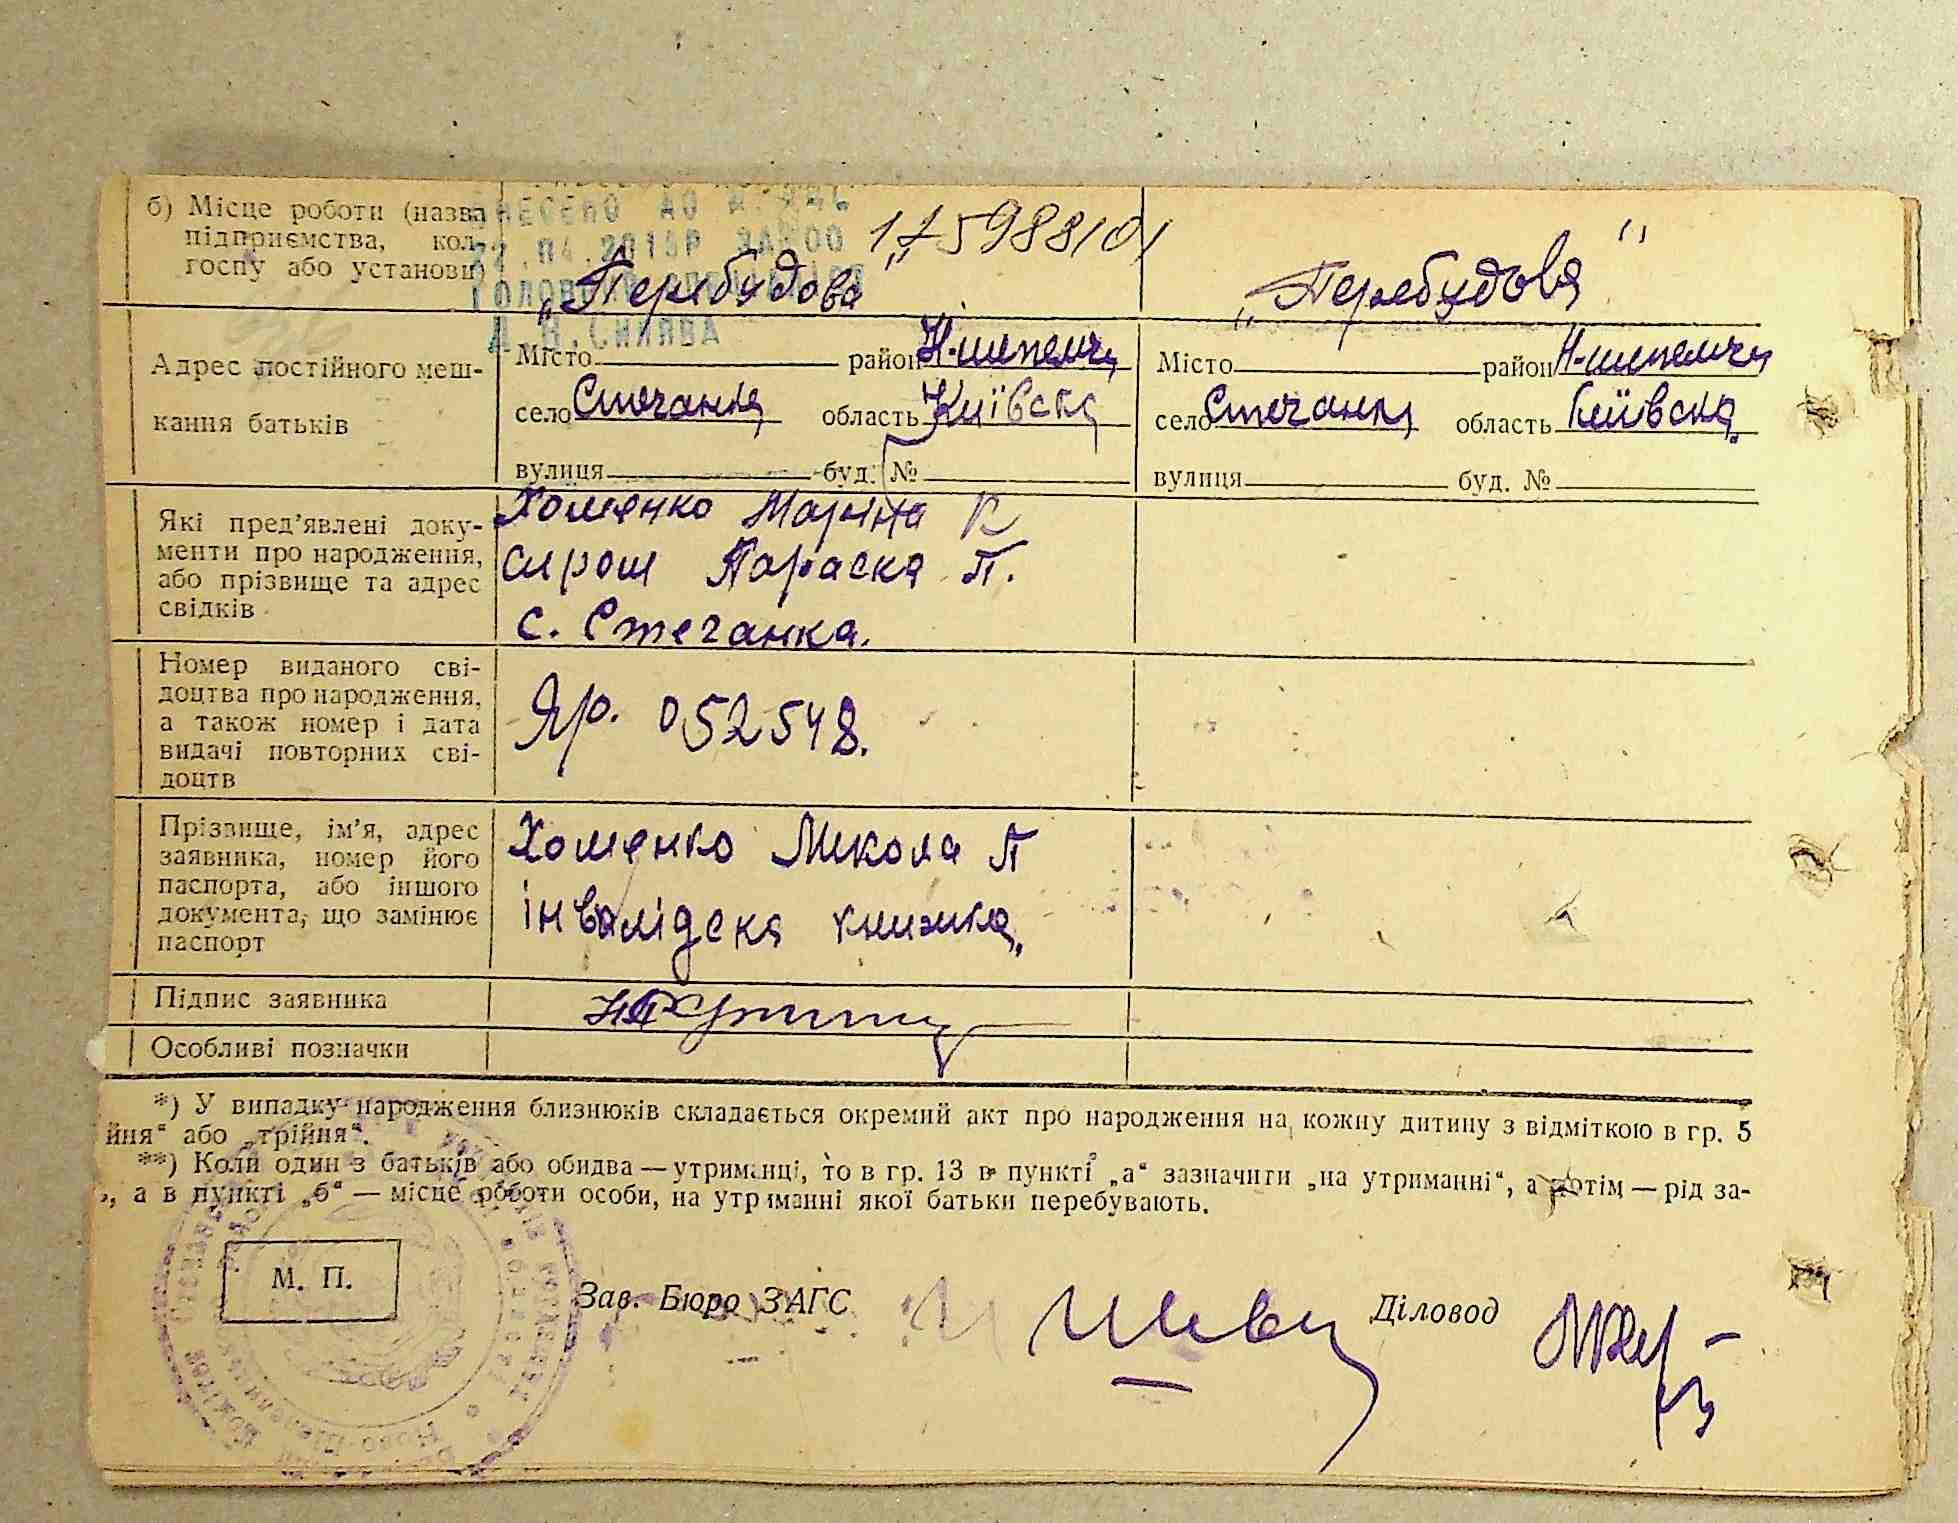 б) Місце роботи (назва
підприємства, кол-
госпу або установи)
17598810
„Перебудова“
„Перебудова“
Адрес постійного меш-
кання батьків
Місто район Н-шепелич
село Стечанка область Київська
вулиця буд. №
Місто район Н-шепелич
село Стечанка область Київська
вулиця буд. №
Які пред’явлені доку-
менти про народження,
або прізвище та адрес
свідків
Хоменко Марина К
Сирош Параска П.
с. Стечанка.
Номер виданого сві-
доцтва про народження,
а також номер і дата
видачі повторних сві-
доцтв
Яр. 052548.
Прізвище, ім’я, адрес
заявника, номер його
паспорта, або іншого
документа, що замінює
паспорт
Хоменко Микола П
інвалідска книжка.
Підпис заявника
Особливі позначки
*) У випадку народження близнюків складається окремий акт про народження на кожну дитину з відміткою в гр. 5
йня“ або „трійня“.
**) Коли один з батьків або обидва — утриманці, то в гр. 13 в пункті „а“ зазначити „на утриманні“, а потім — рід за-
, а в пункті „б“ — місце роботи особи, на утриманні якої батьки перебувають.
М. П.
Зав. Бюро ЗАГС
Діловод